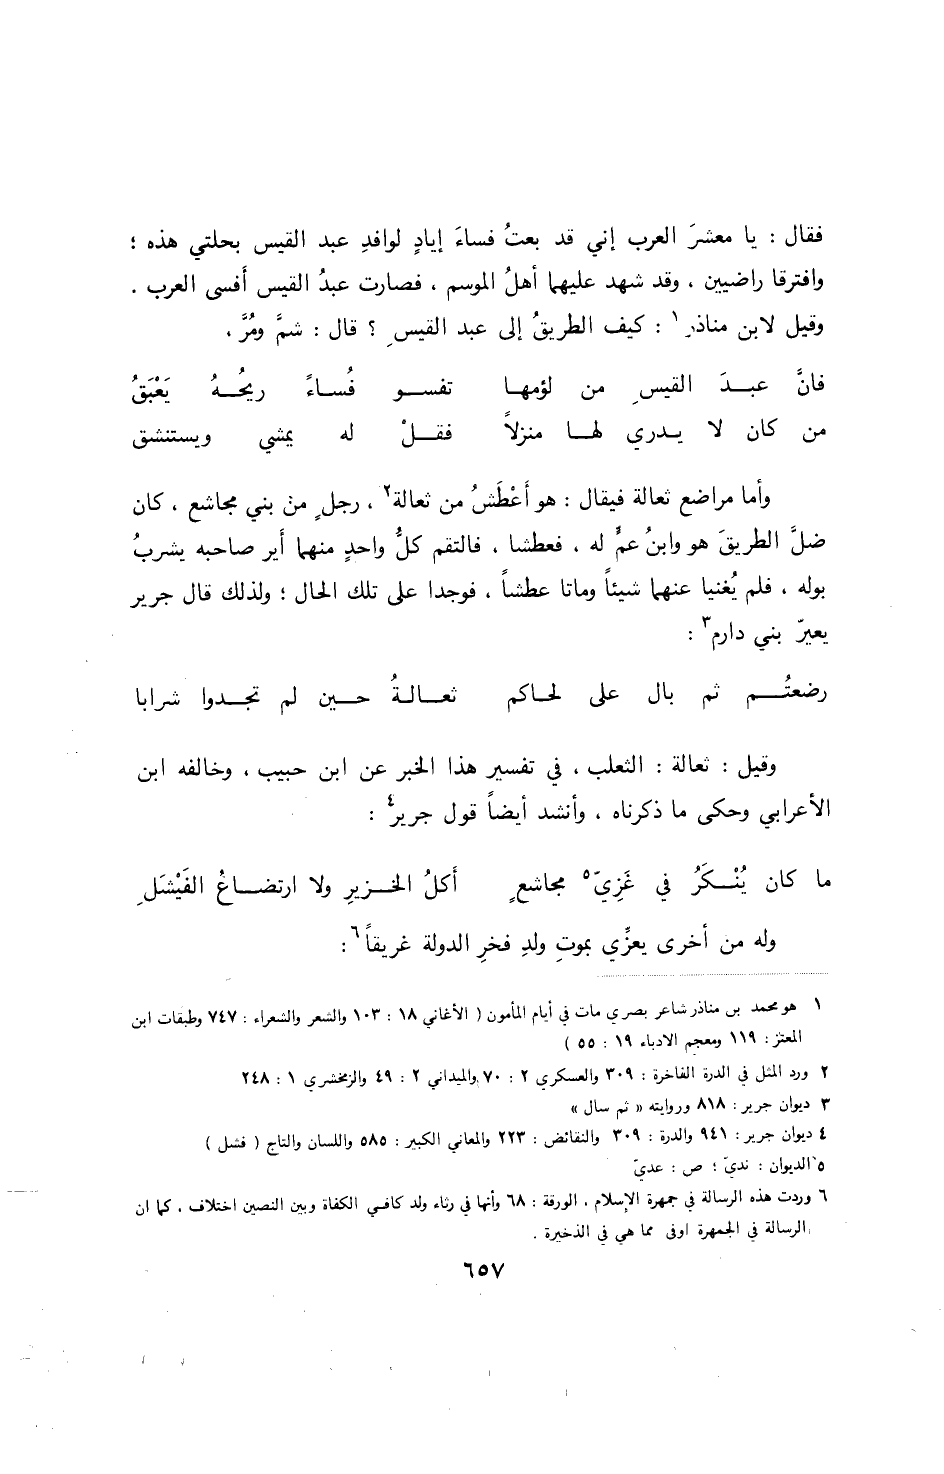 فقال : يا معشرَ العرب إني قد بعتُ فساءَ إيادٍ لوافدِ عبد القيس بحلتي هذه ؛
وافترقا راضيين ، وقد شهد عليهما أهلُ الموسم ، فصارت عبدُ القيس أفسى العرب .
وقيل لابن مناذرٍ ١ : كيف الطريقُ إلى عبد القيسِ ؟ قال : شمَّ ومُرَّ ،
فانَّ عبدَ القيسِ من لؤمها تفسو فُساءً ريحُهُ يَعْبَقُ
من كان لا يدري لها منزلاً فقلْ له يمشي ويستنشق
وأما مراضع ثعالة فيقال : هو أعْطَشُ من ثعالة٢ ، رجلٍ من بني مجاشع ، كان
ضلَّ الطريقَ هو وابنُ عمٍّ له ، فعطشا ، فالتقم كلُّ واحدٍ منهما أير صاحبه يشربُ
بوله ، فلم يُغنيا عنهما شيئاً وماتا عطشاً ، فوجدا على تلك الحال ؛ ولذلك قال جرير
يعيرّ بني دارم٣ :
رضعتُم ثم بال على لحاكم ثعالةُ حين لم تجدوا شرابا
وقيل : ثعالة : الثعلب ، في تفسير هذا الخبر عن ابن حبيب ، وخالفه ابن
الأعرابي وحكى ما ذكرناه ، وأنشد أيضاً قول جرير٤ :
ما كان يُنْكَرُ في غَزِيّ٥ مجاشعٍ أكلُ الخزيرِ ولا ارتضاعُ الفَيْشَلِ
وله من أخرى يعزّي بموتِ ولدِ فخرِ الدولة غريقاً٦ :
١ هو محمد بن مناذر شاعر بصري مات في أيام المأمون ( الأغاني ١٨ : ١٠٣ والشعر والشعراء : ٧٤٧ وطبقات ابن
المعتز : ١١٩ ومعجم الادباء ١٩ : ٥٥ )
٢ ورد المثل في الدرة الفاخرة : ٣٠٩ والعسكري ٢ : ٧٠ والميداني ٢ : ٤٩ والزمخشري ١ : ٢٤٨
٣ ديوان جرير : ٨١٨ وروايته « ثم سال »
٤ ديوان جرير : ٩٤١ والدرة : ٣٠٩ والنقائض : ٢٢٣ والمعاني الكبير : ٥٨٥ واللسان والتاج ( فشل )
٥ الديوان : نديّ ؛ ص : عديّ
٦ وردت هذه الرسالة في جمهرة الإسلام ، الورقة : ٦٨ وأنها في رثاء ولد كافي الكفاة وبين النصين اختلاف ، كما ان
الرسالة في الجمهرة اوفى مما هي في الذخيرة .
٦٥٧